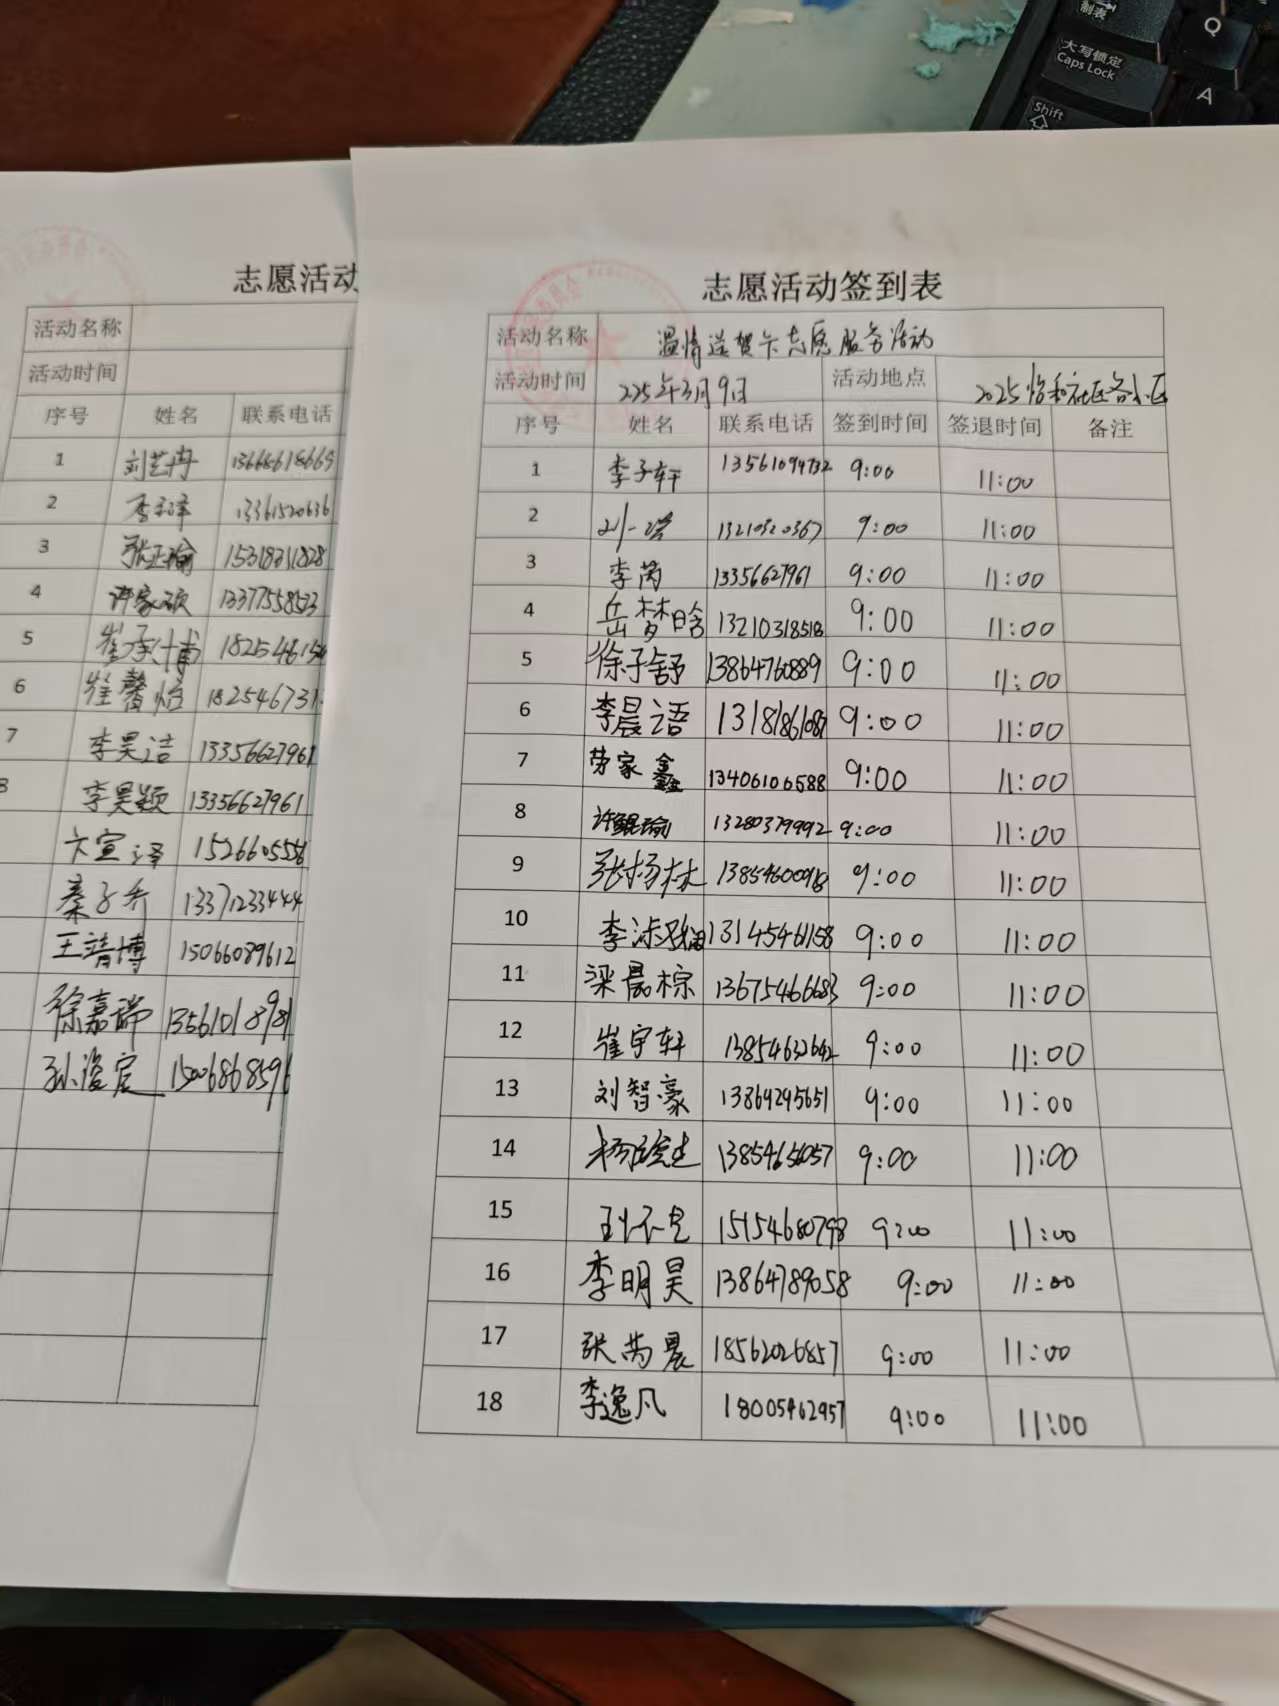 制表
Q
大写锁定
Caps Lock
A
Shift
志愿活动
活动名称
活动时间
序号 姓名 联系电话
1 刘艺冉 13668618669
2 李 13361520636
3 张正瑜 15318311828
4 许家硕 13377558503
5 崔承博 182546154
6 崔馨怡 182546731
7 李昊洁 13356627961
8 李昊颖 13356627961
卞宣泽 1526605556
秦子乔 13371233444
王靖博 15066089612
徐嘉瑞 13561018981
孙浚宸 15006868596
志愿活动签到表
活动名称 温情送贺卡志愿服务活动
活动时间 225年3月9日 活动地点 2025怡和社区各小区
序号 姓名 联系电话 签到时间 签退时间 备注
1 李子轩 13561094732 9:00 11:00
2 刘一 13210320367 9:00 11:00
3 李芮 13356627961 9:00 11:00
4 岳梦晗 13210318518 9:00 11:00
5 徐子舒 13864760889 9:00 11:00
6 李晨语 9:00 11:00
7 劳家鑫 13406106588 9:00 11:00
8 许鲲瑜 13280379992 9:00 11:00
9 张杨林 13854600918 9:00 11:00
10 李 13145461158 9:00 11:00
11 梁晨棕 13675466683 9:00 11:00
12 崔宇轩 13854632642 9:00 11:00
13 刘智豪 13869295651 9:00 11:00
14 杨 13854656057 9:00 11:00
15 15154680798 9:00 11:00
16 李明昊 13864789058 9:00 11:00
17 张芮晨 18562026857 9:00 11:00
18 李逸凡 18005462957 9:00 11:00